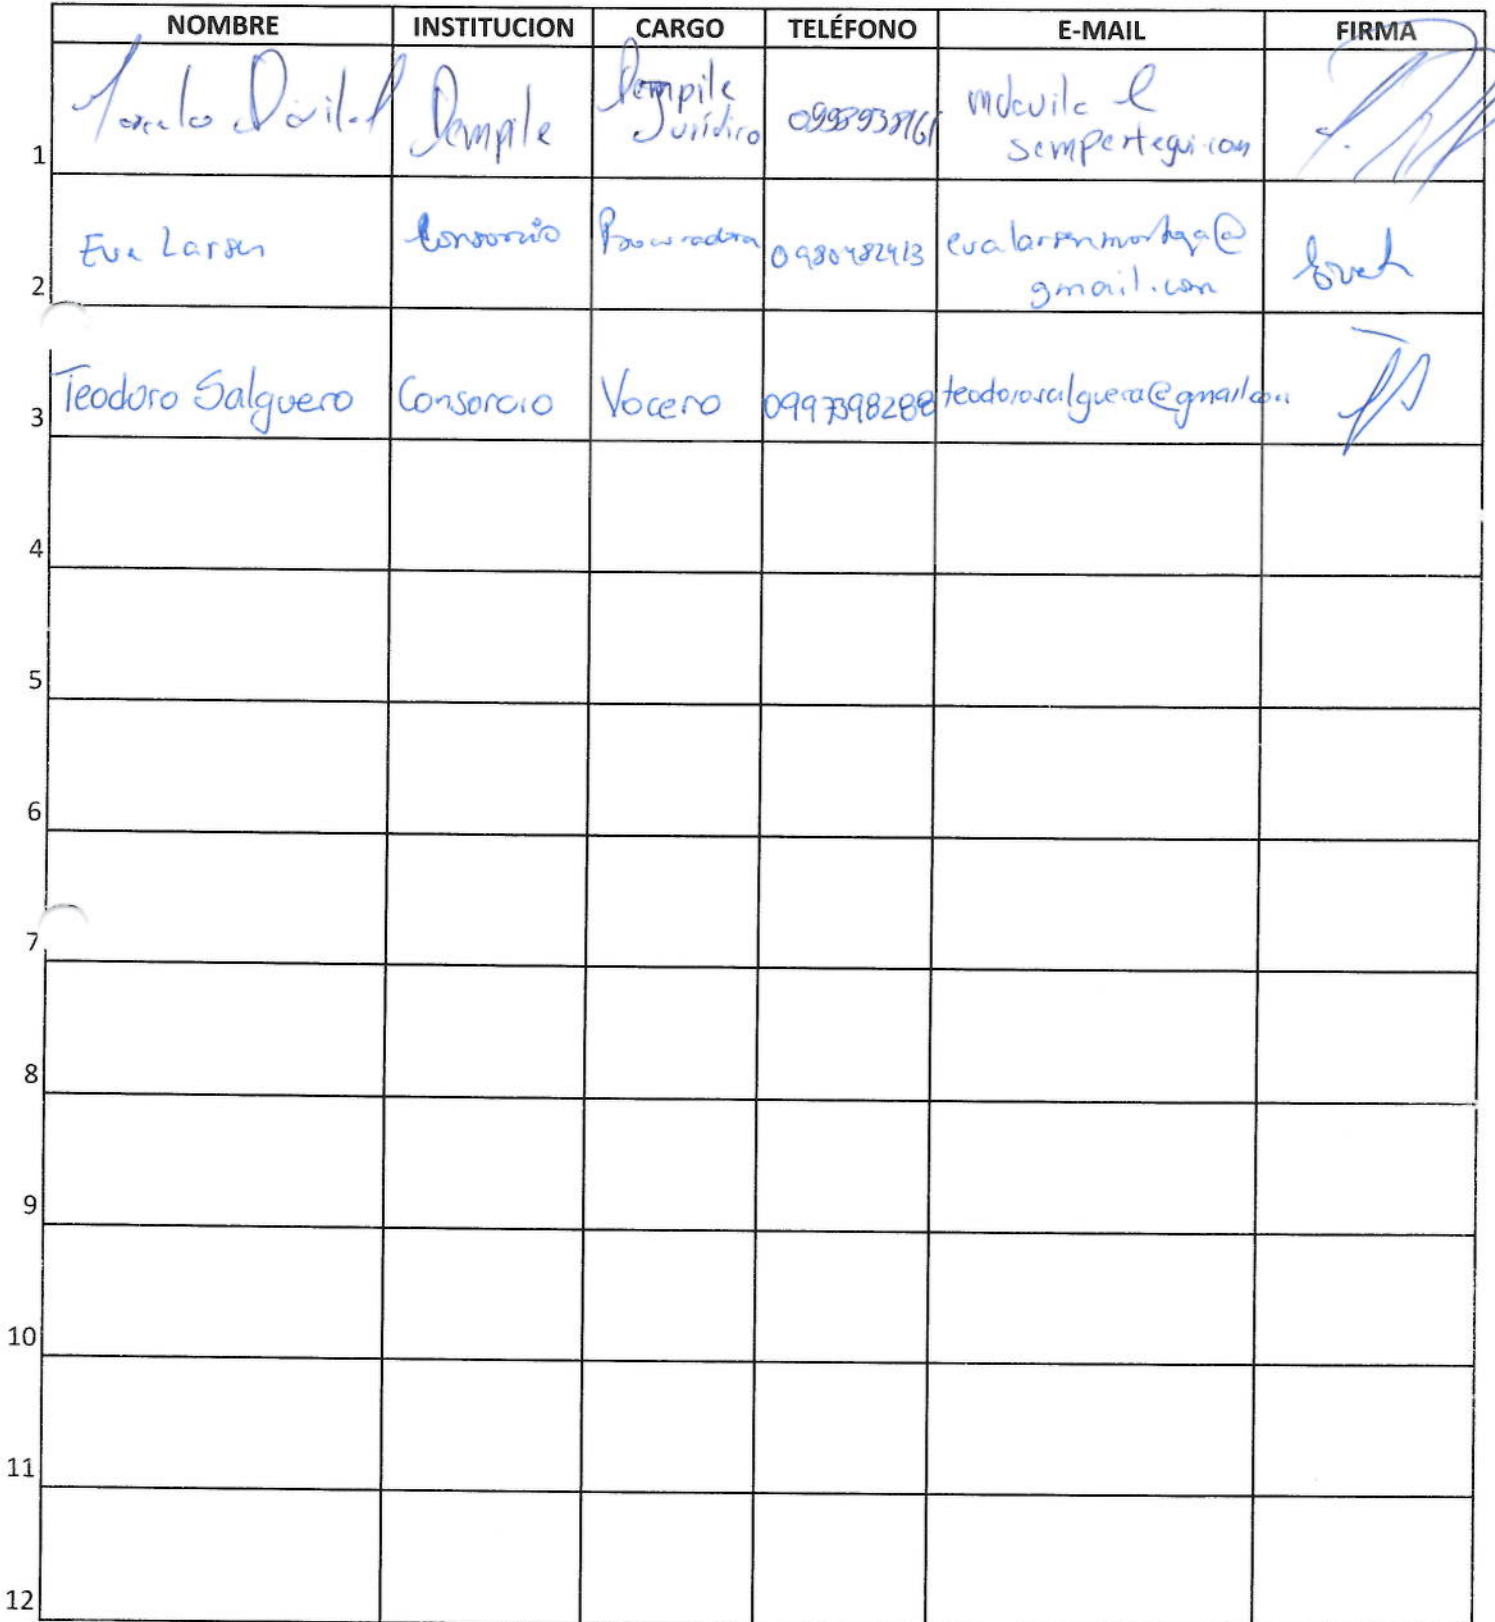 NOMBRE INSTITUCION CARGO TELÉFONO E-MAIL FIRMA
1 Dávila Jurídico
sempertegui.com
2 Eva Larsen Consorcio Procuradora 0980482413 evalarsenmortega@
gmail.com
3 Teodoro Salguero Consorcio Vocero 0997398288 teodorosalguero@gmail.com
4
5
6
7
8
9
10
11
12